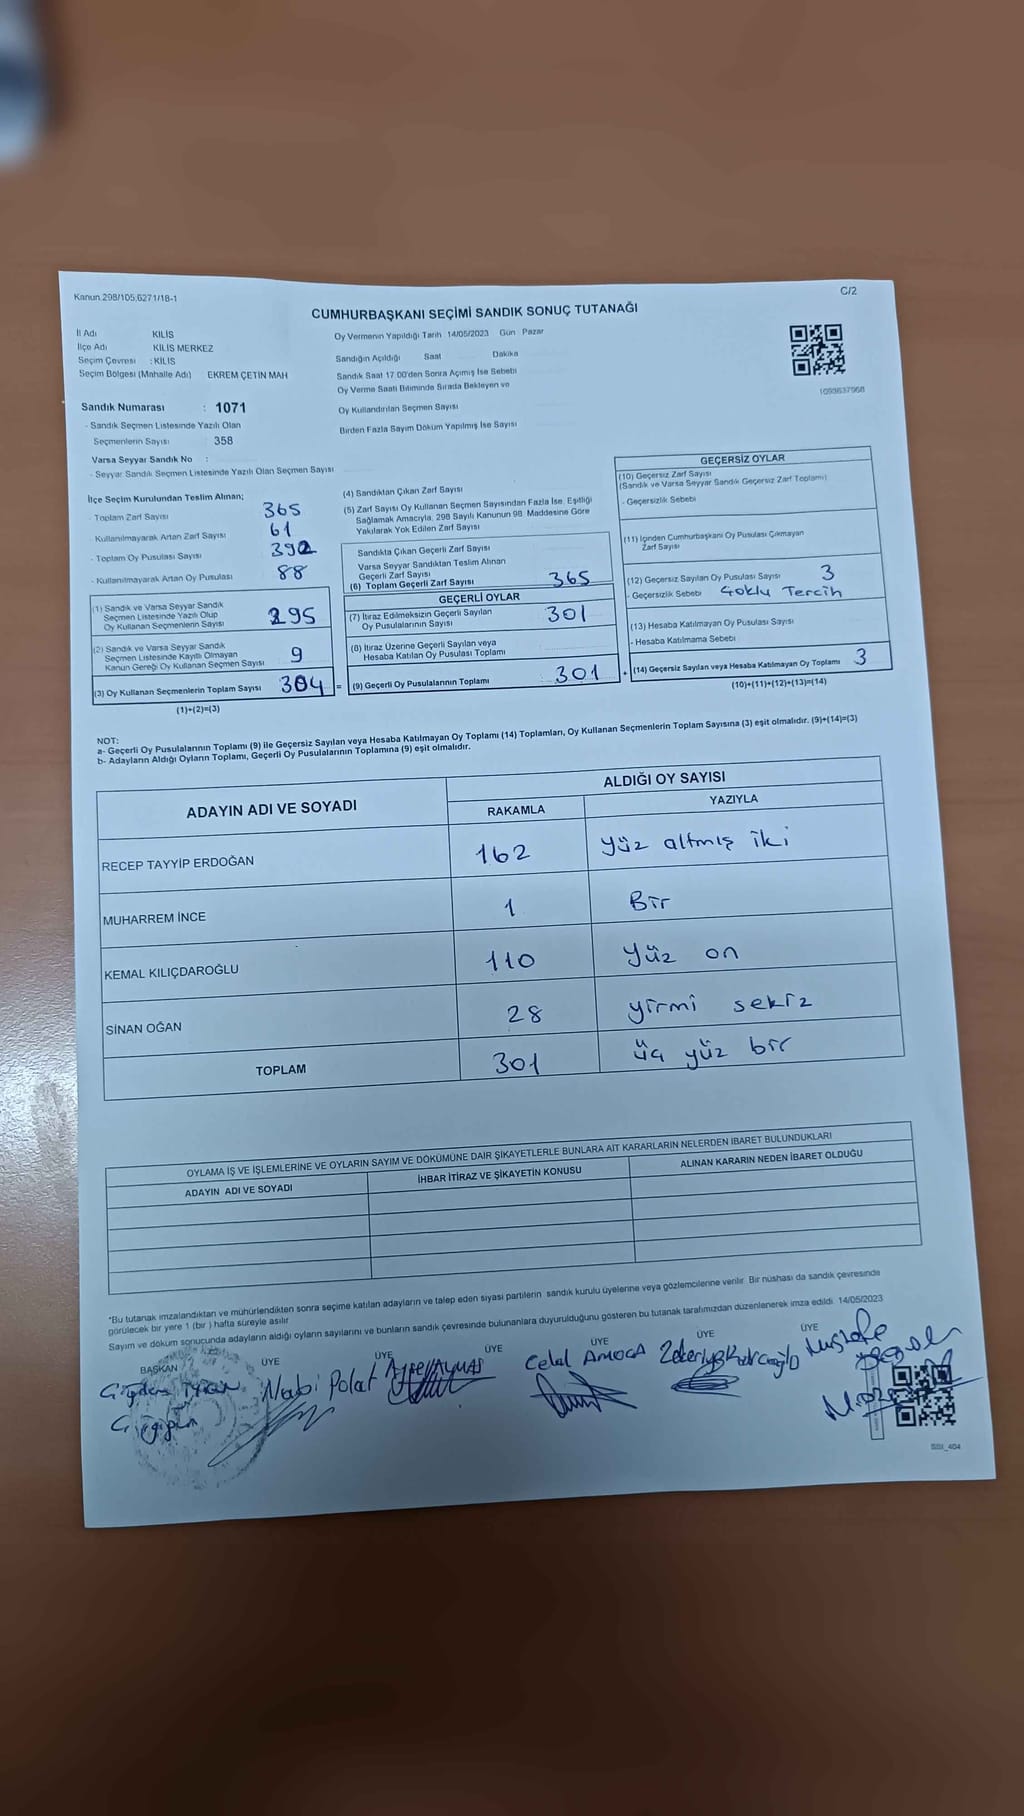 Kanun 298/105;6271/18-1
C/2
CUMHURBAŞKANI SEÇİMİ SANDIK SONUÇ TUTANAĞI
İl Adı KİLİS
İlçe Adı KİLİS MERKEZ
Seçim Çevresi : KİLİS
Seçim Bölgesi (Mahalle Adı) EKREM ÇETİN MAH
Sandık Numarası : 1071
- Sandık Seçmen Listesinde Yazılı Olan
Seçmenlerin Sayısı 358
Varsa Seyyar Sandık No :
- Seyyar Sandık Seçmen Listesinde Yazılı Olan Seçmen Sayısı
Oy Vermenin Yapıldığı Tarih 14/05/2023 Gün Pazar
Sandığın Açıldığı Saat Dakika
Sandık Saat 17.00'den Sonra Açımış İse Sebebi
Oy Verme Saati Bitiminde Sırada Bekleyen ve
Oy Kullandırılan Seçmen Sayısı
Birden Fazla Sayım Döküm Yapılmış İse Sayısı
1093637968
İlçe Seçim Kurulundan Teslim Alınan;
- Toplam Zarf Sayısı 365
- Kullanılmayarak Artan Zarf Sayısı 61
- Toplam Oy Pusulası Sayısı 392
- Kullanılmayarak Artan Oy Pusulası 88
(1) Sandık ve Varsa Seyyar Sandık
Seçmen Listesinde Yazılı Olup
Oy Kullanan Seçmenlerin Sayısı 295
(2) Sandık ve Varsa Seyyar Sandık
Seçmen Listesinde Kayıtlı Olmayan
Kanun Gereği Oy Kullanan Seçmen Sayısı 9
(3) Oy Kullanan Seçmenlerin Toplam Sayısı 304 =
(1)+(2)=(3)
(4) Sandıktan Çıkan Zarf Sayısı
(5) Zarf Sayısı Oy Kullanan Seçmen Sayısından Fazla İse, Eşitliği
Sağlamak Amacıyla, 298 Sayılı Kanunun 98. Maddesine Göre
Yakılarak Yok Edilen Zarf Sayısı
Sandıkta Çıkan Geçerli Zarf Sayısı
Varsa Seyyar Sandıktan Teslim Alınan
Geçerli Zarf Sayısı
(6) Toplam Geçerli Zarf Sayısı 365
GEÇERLİ OYLAR
(7) İtiraz Edilmeksizin Geçerli Sayılan
Oy Pusulalarının Sayısı 301
(8) İtiraz Üzerine Geçerli Sayılan veya
Hesaba Katılan Oy Pusulası Toplamı
(9) Geçerli Oy Pusulalarının Toplamı 301 +
GEÇERSİZ OYLAR
(10) Geçersiz Zarf Sayısı
(Sandık ve Varsa Seyyar Sandık Geçersiz Zarf Toplamı)
- Geçersizlik Sebebi
(11) İçinden Cumhurbaşkanı Oy Pusulası Çıkmayan
Zarf Sayısı
(12) Geçersiz Sayılan Oy Pusulası Sayısı 3
- Geçersizlik Sebebi Çoklu Tercih
(13) Hesaba Katılmayan Oy Pusulası Sayısı
- Hesaba Katılmama Sebebi
(14) Geçersiz Sayılan veya Hesaba Katılmayan Oy Toplamı 3
(10)+(11)+(12)+(13)=(14)
NOT:
a- Geçerli Oy Pusulalarının Toplamı (9) ile Geçersiz Sayılan veya Hesaba Katılmayan Oy Toplamı (14) Toplamları, Oy Kullanan Seçmenlerin Toplam Sayısına (3) eşit olmalıdır. (9)+(14)=(3)
b- Adayların Aldığı Oyların Toplamı, Geçerli Oy Pusulalarının Toplamına (9) eşit olmalıdır.
ADAYIN ADI VE SOYADI ALDIĞI OY SAYISI
RAKAMLA YAZIYLA
RECEP TAYYİP ERDOĞAN 162 yüz altmış iki
MUHARREM İNCE 1 Bir
KEMAL KILIÇDAROĞLU 110 yüz on
SİNAN OĞAN 28 yirmi sekiz
TOPLAM 301 üç yüz bir
OYLAMA İŞ VE İŞLEMLERİNE VE OYLARIN SAYIM VE DÖKÜMÜNE DAİR ŞİKAYETLERLE BUNLARA AİT KARARLARIN NELERDEN İBARET BULUNDUKLARI
ADAYIN ADI VE SOYADI İHBAR İTİRAZ VE ŞİKAYETİN KONUSU ALINAN KARARIN NEDEN İBARET OLDUĞU
*Bu tutanak imzalandıktan ve mühürlendikten sonra seçime katılan adayların ve talep eden siyasi partilerin sandık kurulu üyelerine veya gözlemcilerine verilir. Bir nüshası da sandık çevresinde
görülecek bir yere 1 (bir) hafta süreyle asılır.
Sayım ve döküm sonucunda adayların aldığı oyların sayılarını ve bunların sandık çevresinde bulunanlara duyurulduğunu gösteren bu tutanak tarafımızdan düzenlenerek imza edildi. 14/05/2023
BAŞKAN ÜYE ÜYE ÜYE ÜYE ÜYE ÜYE
Nabi Polat Celal Zekeriya Mustafa
SSI_404